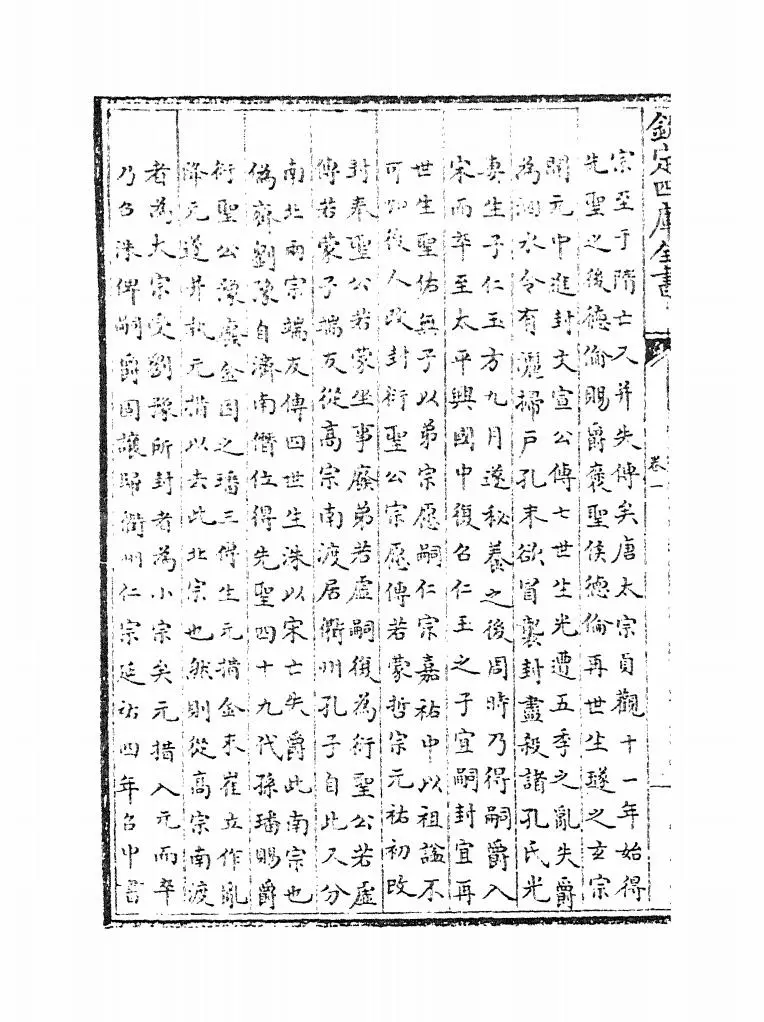 欽定四庫全書
卷一
宗至于隋亡又并失傳矣唐太宗貞觀十一年始得
先聖之後德倫賜爵襃聖侯德倫再世生璲之玄宗
開元中進封文宣公傳七世生光遭五季之亂失爵
為泗水令有灑掃戶孔末欲冒襲封盡殺諸孔氏光
妻生子仁玉方九月遂秘養之後周時乃得嗣爵入
宋而卒至太平興國中復召仁玉之子宜嗣封宜再
世生聖佑無子以弟宗愿嗣仁宗嘉祐中以祖諡不
可加後人改封衍聖公宗愿傳若蒙哲宗元祐初改
封奉聖公若蒙坐事廢弟若虛嗣復為衍聖公若虛
傳若蒙子端友從高宗南渡居衢州孔子自此又分
南北兩宗端友傳四世生洙以宋亡失爵此南宗也
偽齊劉豫自濟南僭位得先聖四十九代孫璠賜爵
衍聖公豫廢金因之璠三傳生元措金末崔立作亂
降元遂并執元措以去此北宗也然則從高宗南渡
者為大宗受劉豫所封者為小宗矣元措入元而卒
乃召洙俾嗣爵固讓歸衢州仁宗延祐四年召中書